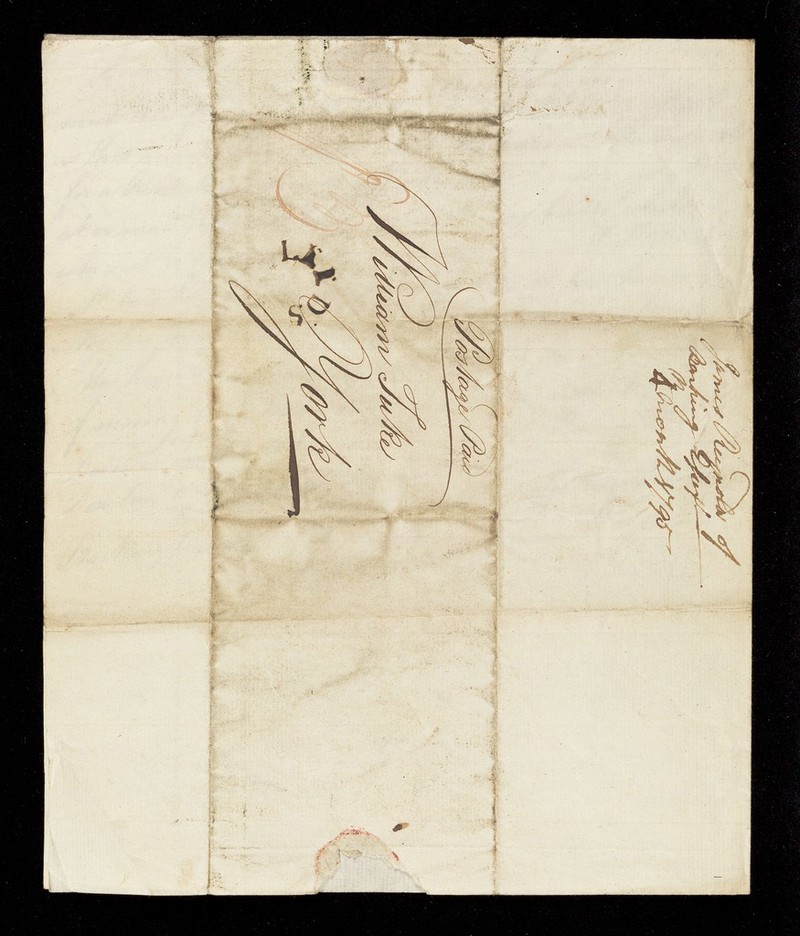 Postage Paid
William Tuke
York
James Reynolds of
Barking Essex
4 month 1795